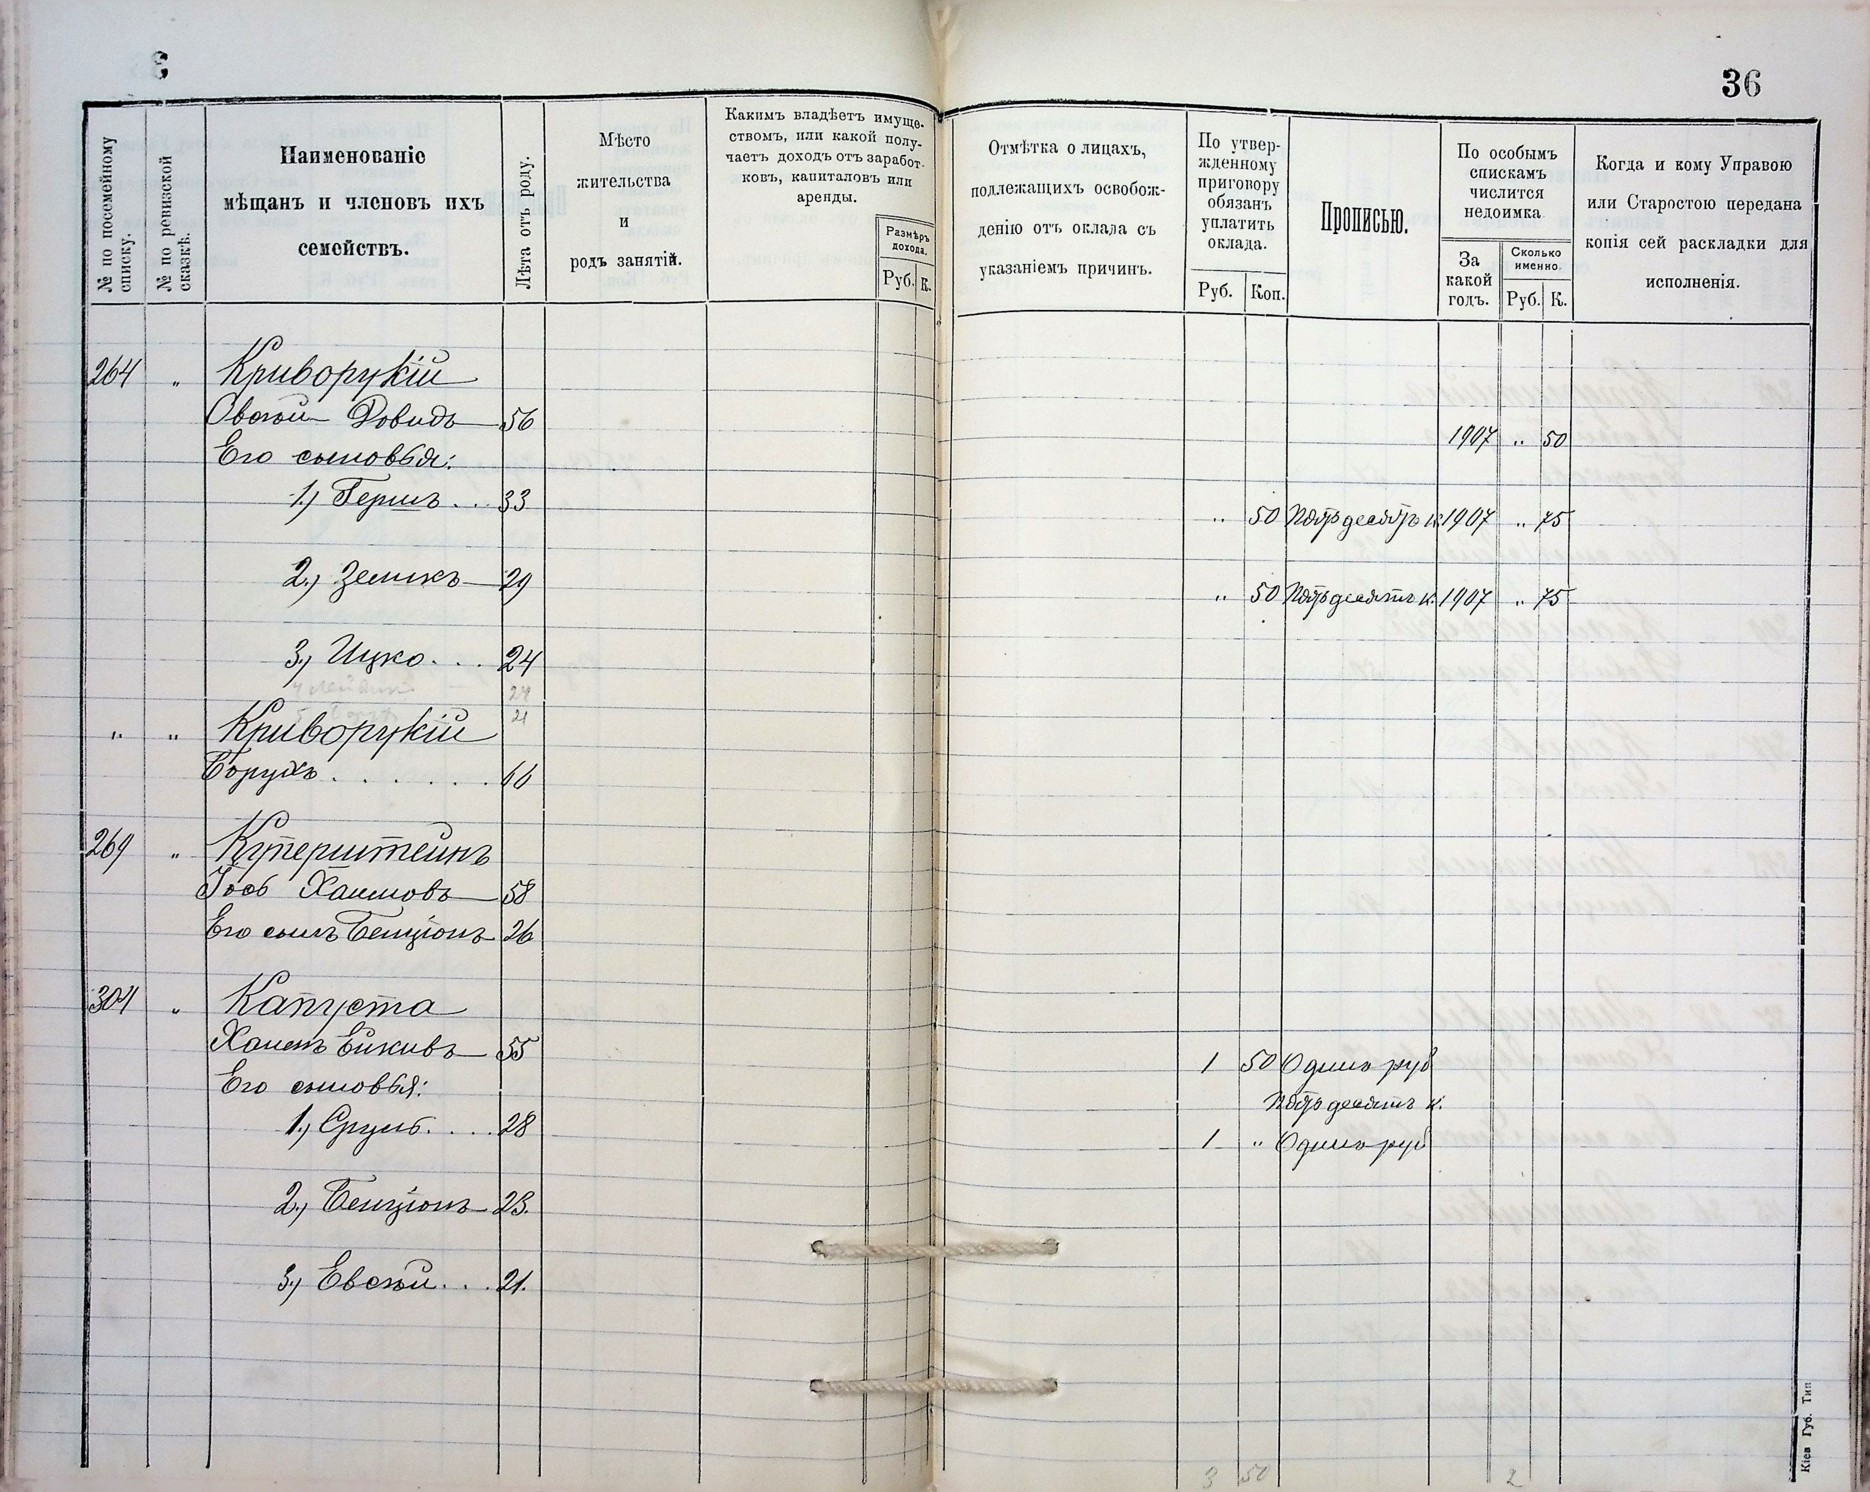 36
№ по посемейному списку.
№ по ревизской сказкѣ.
Наименованіе
мѣщанъ и членовъ ихъ
семействъ.
Лѣта отъ роду.
Мѣсто
жительства
и
родъ занятій.
Какимъ владѣетъ имуще-
ствомъ, или какой полу-
чаетъ доходъ отъ заработ-
ковъ, капиталовъ или
аренды.
Размѣръ
дохода.
Руб. К.
Отмѣтка о лицахъ,
подлежащихъ освобож-
денію отъ оклада съ
указаніемъ причинъ.
По утвер-
жденному
приговору
обязанъ
уплатить
оклада.
Руб. Коп.
Прописью.
По особымъ
спискамъ
числится
недоимка
За
какой
годъ.
Сколько
именно.
Руб. К.
Когда и кому Управою
или Старостою передана
копія сей раскладки для
исполненія.
264 " Криворукій
Овсѣй Довидъ 56 1907 " 50
Его сыновья:
1.) Гершъ . . . 33 " 50 Пятьдесятъ к. 1907 " 75
2.) Зеликъ 29 " 50 Пятьдесятъ к. 1907 " 75
3.) Ицко . . . 24
24
21
" " Криворукій
Борухъ . . . . . . . 66
269 " Куперштейнъ
Іось Хаимовъ 58
Его сынъ Бенціонъ 26
304 " Капуста
Хаимъ Ейкивъ 55 1 50 Одинъ руб
Его сыновья: Пятьдесятъ к.
1.) Сруль . . . . 28 1 " Одинъ руб
2.) Бенціонъ 23.
3.) Евсѣй . . . 21.
3 50 2
Кіев Губ. Тип